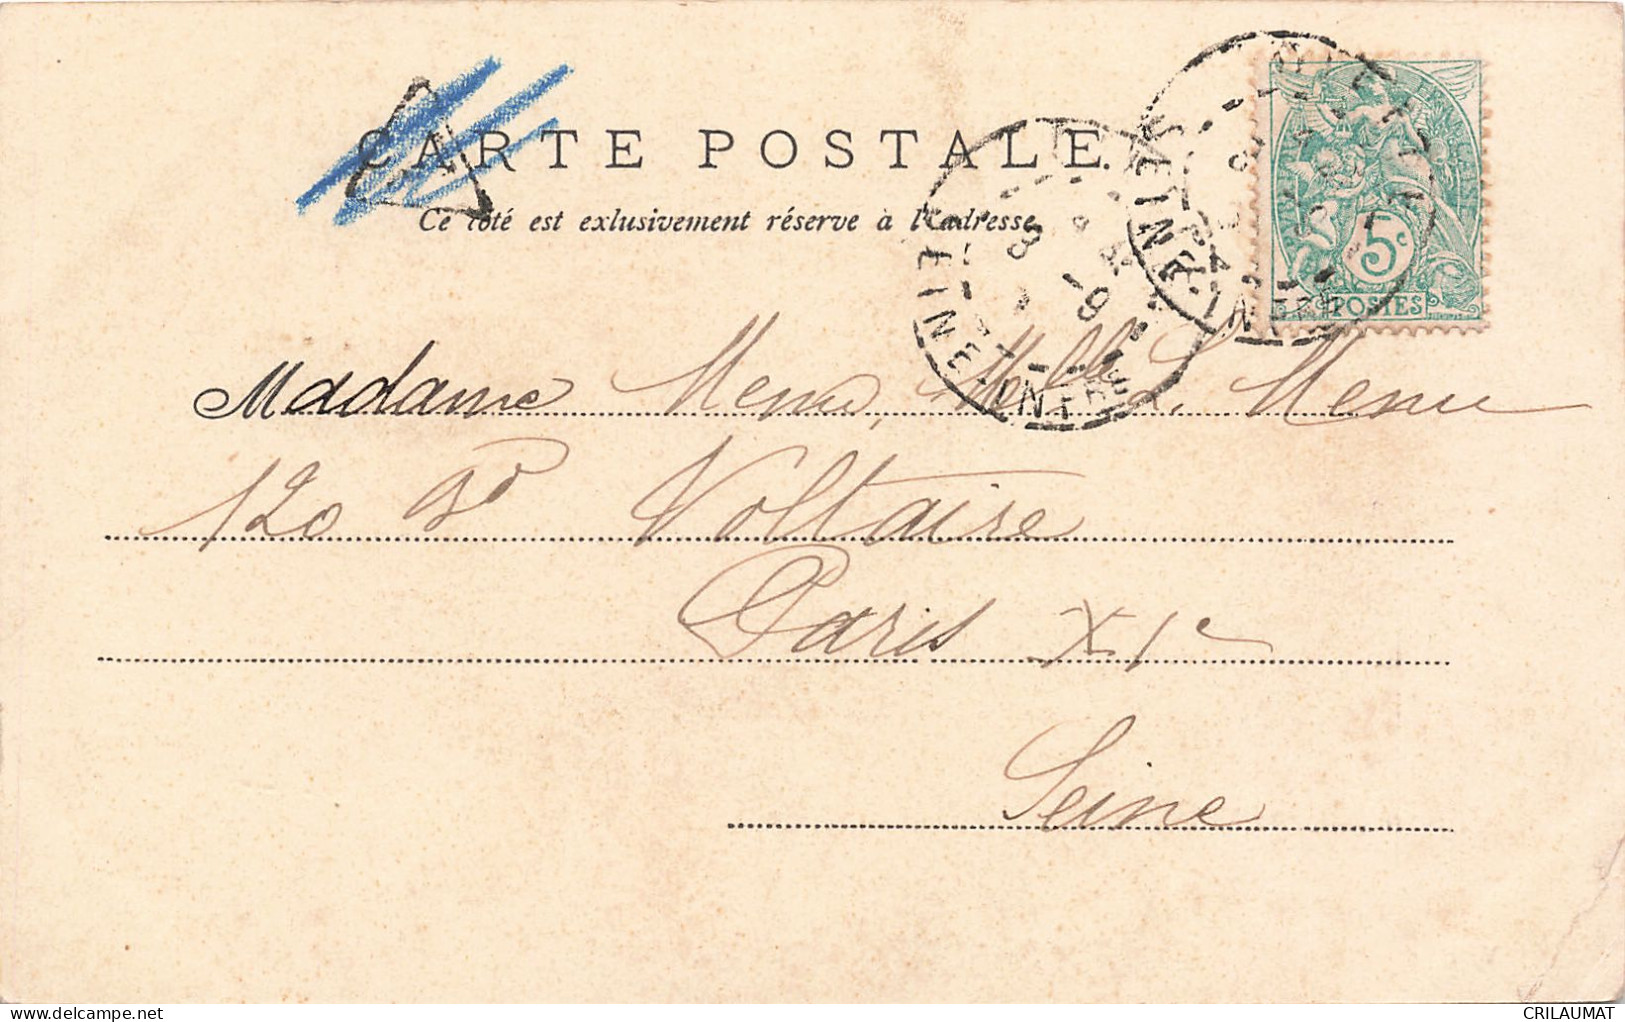 CARTE POSTALE
Ce côté est exlusivement réserve à l'adresse
5c
POSTES
SEINE
SEINE
Madame Menu, Melle L. Menu
120 Bd Voltaire
Paris XIe
Seine
delcampe.net
CRILAUMAT